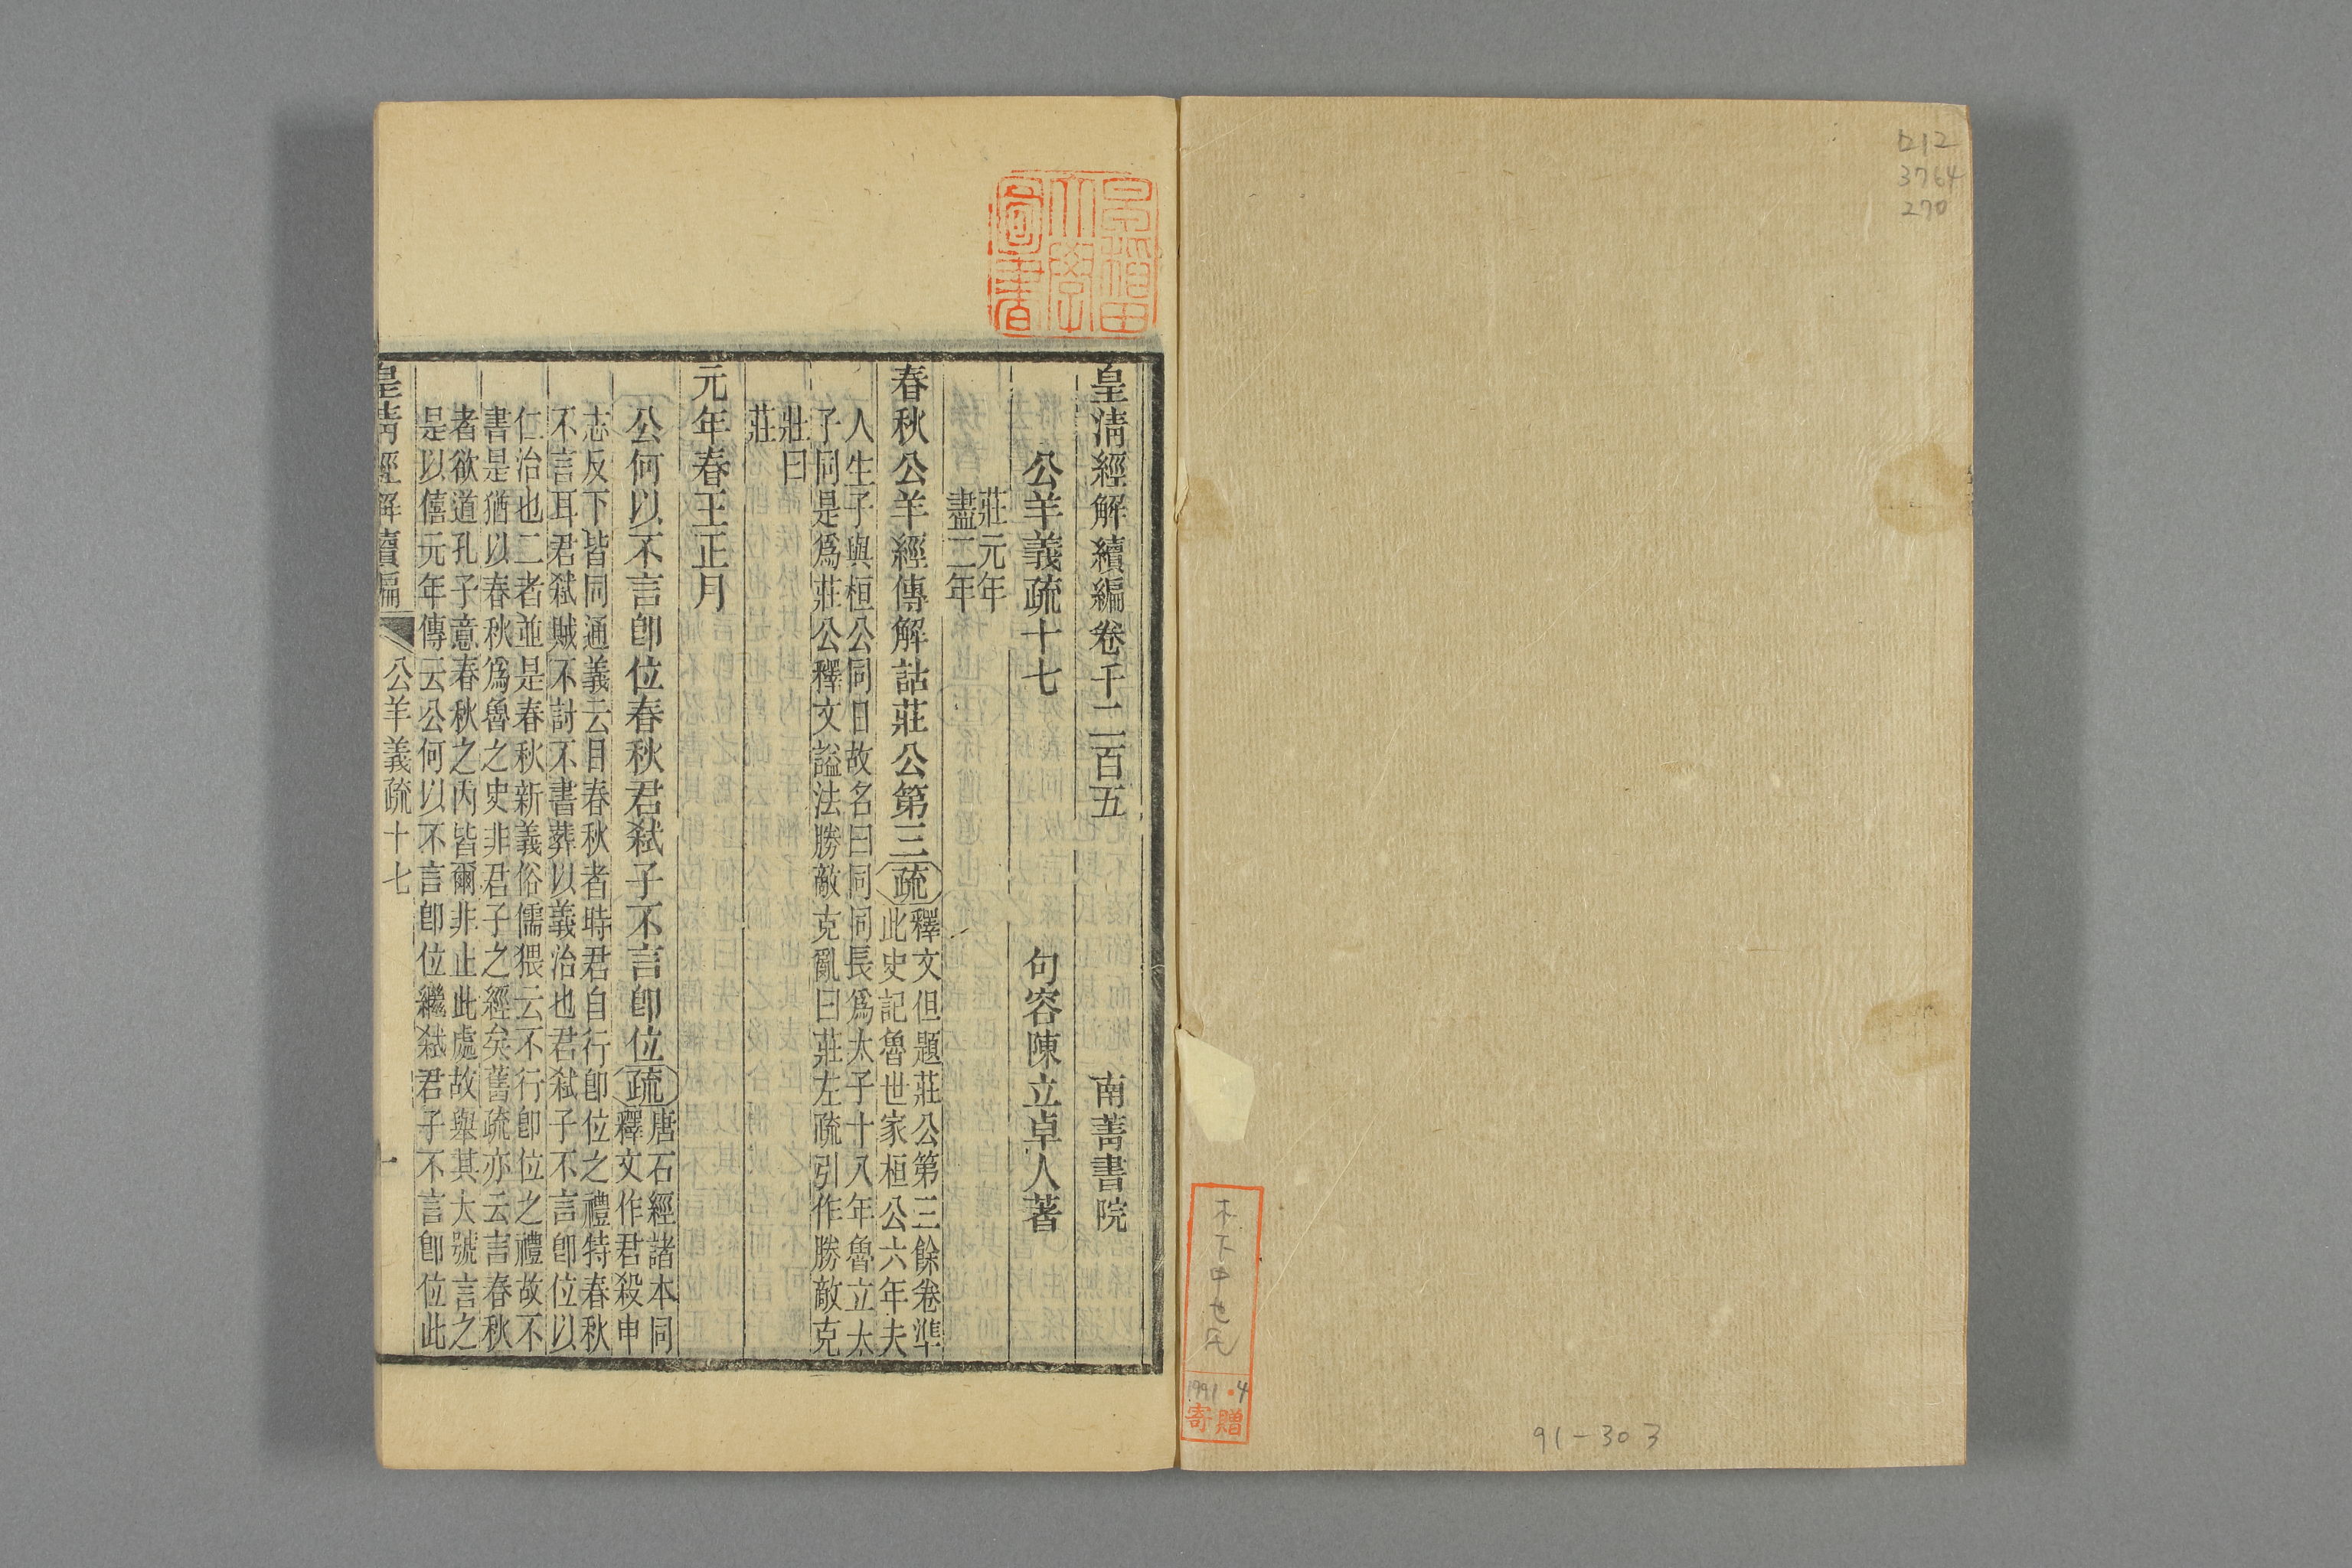 ㄅ12
3764
270
木下中也氏
1991.4
寄贈
91-303
早稲田
大學
圖書
皇清經解續編卷千二百五 南菁書院
公羊義疏十七 句容陳立卓人著
莊元年
盡二年
春秋公羊經傳解詁莊公第三疏
釋文但題莊公第三餘卷準
此史記魯世家桓公六年夫
人生子與桓公同日故名曰同同長爲太子十八年魯立太
子同是爲莊公釋文謚法勝敵克亂曰莊左疏引作勝敵克
壯曰
莊
元年春王正月
公何以不言卽位春秋君弒子不言卽位疏
唐石經諸本同
釋文作君殺申
志反下皆同通義云目春秋者時君自行卽位之禮特春秋
不言耳君弒賊不討不書葬以義治也君弒子不言卽位以
仁治也二者並是春秋新義俗儒猥云不行卽位之禮故不
書是猶以春秋爲魯之史非君子之經矣舊疏亦云言春秋
者欲道孔子意春秋之內皆爾非止此處故舉其大號言之
是以僖元年傳云公何以不言卽位繼弒君子不言卽位此
皇清經解續編 公羊義疏十七 一